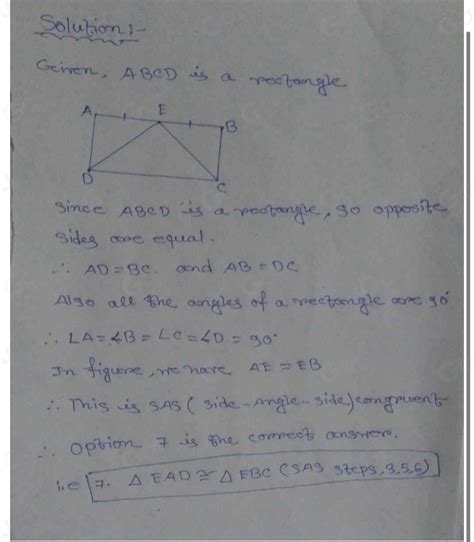 Solution:-
Given, ABCD is a rectangle
A E B
D C
Since ABCD is a rectangle, so opposite
sides are equal.
∴ AD = BC and AB = DC
Also all the angles of a rectangle are 90°
∴ ∠A = ∠B = ∠C = ∠D = 90°
In figure, we have AE = EB
∴ This is SAS (side-Angle-side) congruent
∴ option 7 is the correct answer.
i.e 7. Δ EAD ≅ Δ EBC (SAS steps, 3,5,6)